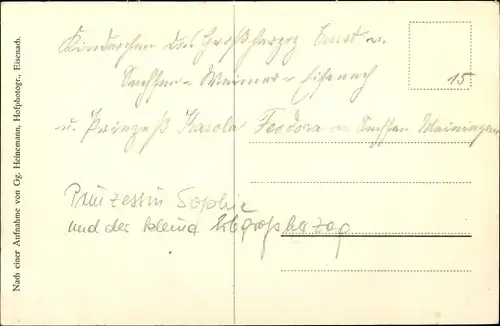 Nach einer Aufnahme von Gg. Heinemann, Hofphotogr., Eisenach.
Kinderchen des Großherzog Ernst v.
Sachsen-Weimar-Eisenach
u. Prinzeß Karola Feodora v. Sachsen Meiningen
15
Prinzessin Sophie
und der kleine Erbgroßherzog